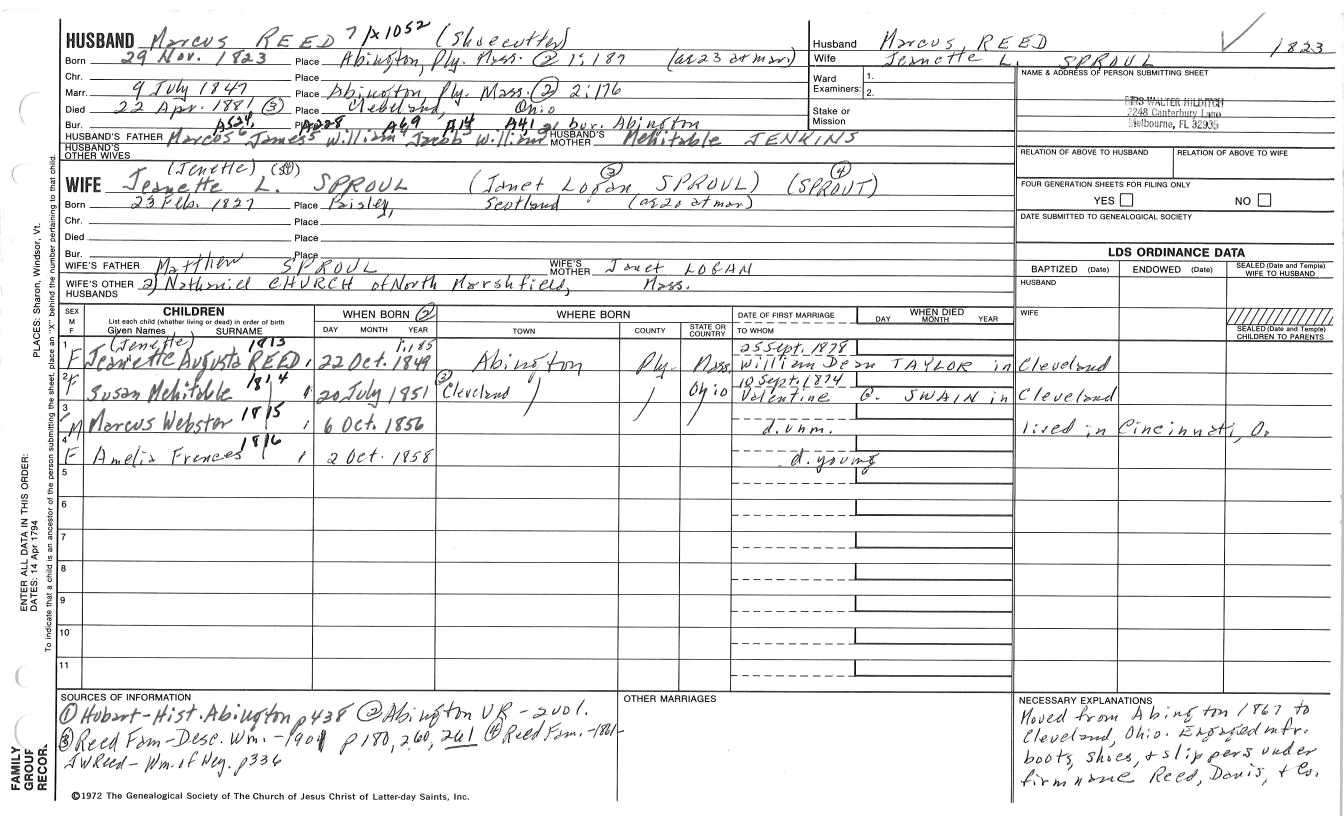 HUSBAND Marcus REED 7/x1052 (Shoecutter)
Born 29 Nov. 1823 Place Abington, Ply. Mass. (2) 1:187 (as 23 at mar)
Chr. Place
Marr. 9 July 1847 Place Abington, Ply. Mass. (2) 2:176
Died 22 Apr. 1881 (3) Place Cleveland, Ohio
Bur. Place bur. Abington
A524, A228 A69 A14 A41
HUSBAND'S FATHER Marcus6 James5 William4 Jacob William HUSBAND'S MOTHER Mehitable JENKINS
HUSBAND'S OTHER WIVES
(Jenette)
WIFE Jeanette L. SPROUL (Janet Logan SPROUL) (3) (SPROUT) (4)
Born 23 Feb. 1827 Place Paisley, Scotland (as 20 at mar)
Chr. Place
Died Place
Bur. Place
WIFE'S FATHER Matthew SPROUL WIFE'S MOTHER Janet LOGAN
WIFE'S OTHER HUSBANDS 2) Nathaniel CHURCH of North Marshfield, Mass.
Husband Marcus REED 1823
Wife Jeanette L. SPROUL
Ward Examiners: 1. 2.
Stake or Mission
NAME & ADDRESS OF PERSON SUBMITTING SHEET
MRS WALTER HILDITCH
2248 Canterbury Lane
Melbourne, FL 32935
RELATION OF ABOVE TO HUSBAND RELATION OF ABOVE TO WIFE
FOUR GENERATION SHEETS FOR FILING ONLY
YES NO
DATE SUBMITTED TO GENEALOGICAL SOCIETY
LDS ORDINANCE DATA
BAPTIZED (Date) ENDOWED (Date) SEALED (Date and Temple) WIFE TO HUSBAND
HUSBAND
WIFE
SEALED (Date and Temple) CHILDREN TO PARENTS
SEX M F CHILDREN WHEN BORN (2) WHERE BORN DATE OF FIRST MARRIAGE WHEN DIED
List each child (whether living or dead) in order of birth
Given Names SURNAME DAY MONTH YEAR TOWN COUNTY STATE OR COUNTRY TO WHOM DAY MONTH YEAR
(Jenette) 1813 1:185 25 Sept. 1878
1 F Jeanette Augusta REED 22 Oct. 1849 Abington Ply. Mass. William Dean TAYLOR in Cleveland
1814 10 Sept. 1874
2 F Susan Mehitable 20 July 1851 (3) Cleveland Ohio Valentine O. SWAIN in Cleveland
3 M Marcus Webster 1815 6 Oct. 1856 d. unm. lived in Cincinnati, O.
4 F Amelia Frances 1816 2 Oct. 1858 d. young
5
6
7
8
9
10
11
SOURCES OF INFORMATION
(1) Hobart-Hist. Abington p438 (2) Abington VR - 2 vol.
(3) Reed Fam-Desc. Wm. -1901 p180, 260, 261 (4) Reed Fam. -1861-
JW Reed - Wm. of Wey. p336
OTHER MARRIAGES
NECESSARY EXPLANATIONS
Moved from Abington 1867 to
Cleveland, Ohio. Engaged mfr.
boots, shoes, & slippers under
firm name Reed, Davis, & Co.
©1972 The Genealogical Society of The Church of Jesus Christ of Latter-day Saints, Inc.
FAMILY GROUP RECOR.
ENTER ALL DATA IN THIS ORDER:
DATES: 14 Apr 1794
PLACES: Sharon, Windsor, Vt.
To indicate that a child is an ancestor of the person submitting the sheet, place an "X" behind the number pertaining to that child.